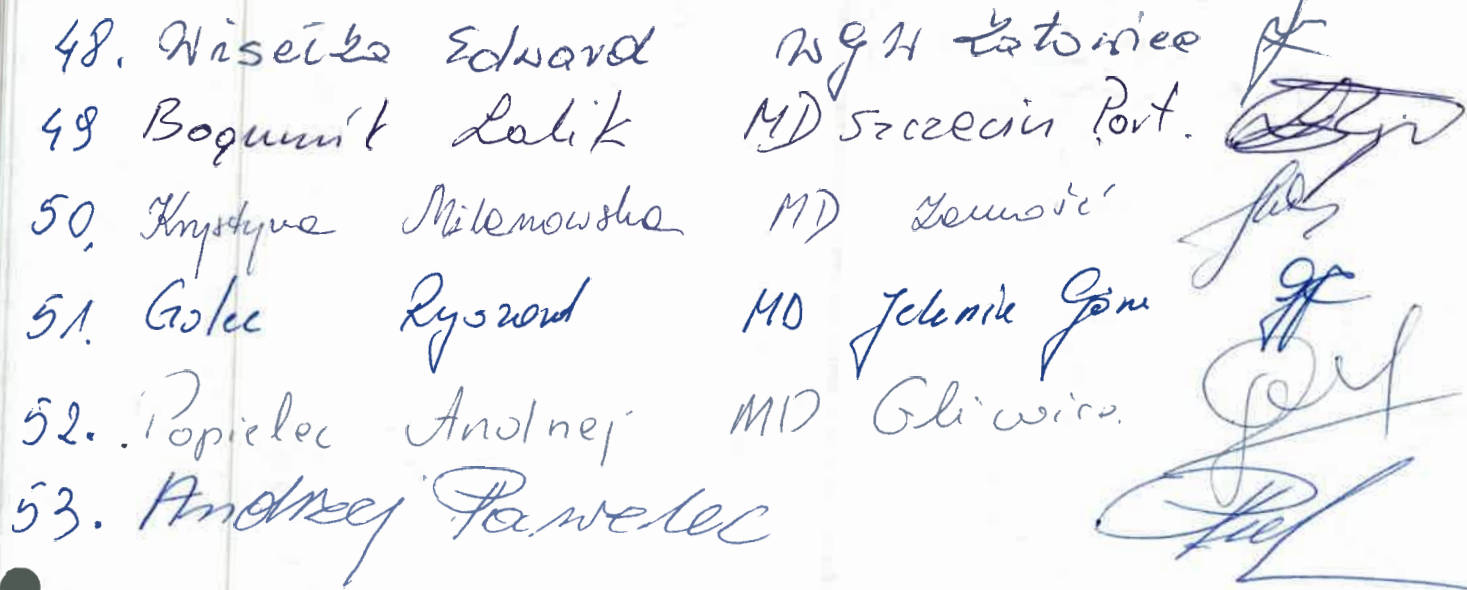 48. Wisełka Edward WGW Katowice
49 Bogumił Lalik MD Szczecin Port.
50. Krystyna Milanowska MD Zamość
51. Golec Ryszard MD Jelenia Góra
52. Popielec Andrzej MD Gliwice
53. Andrzej Pawelec